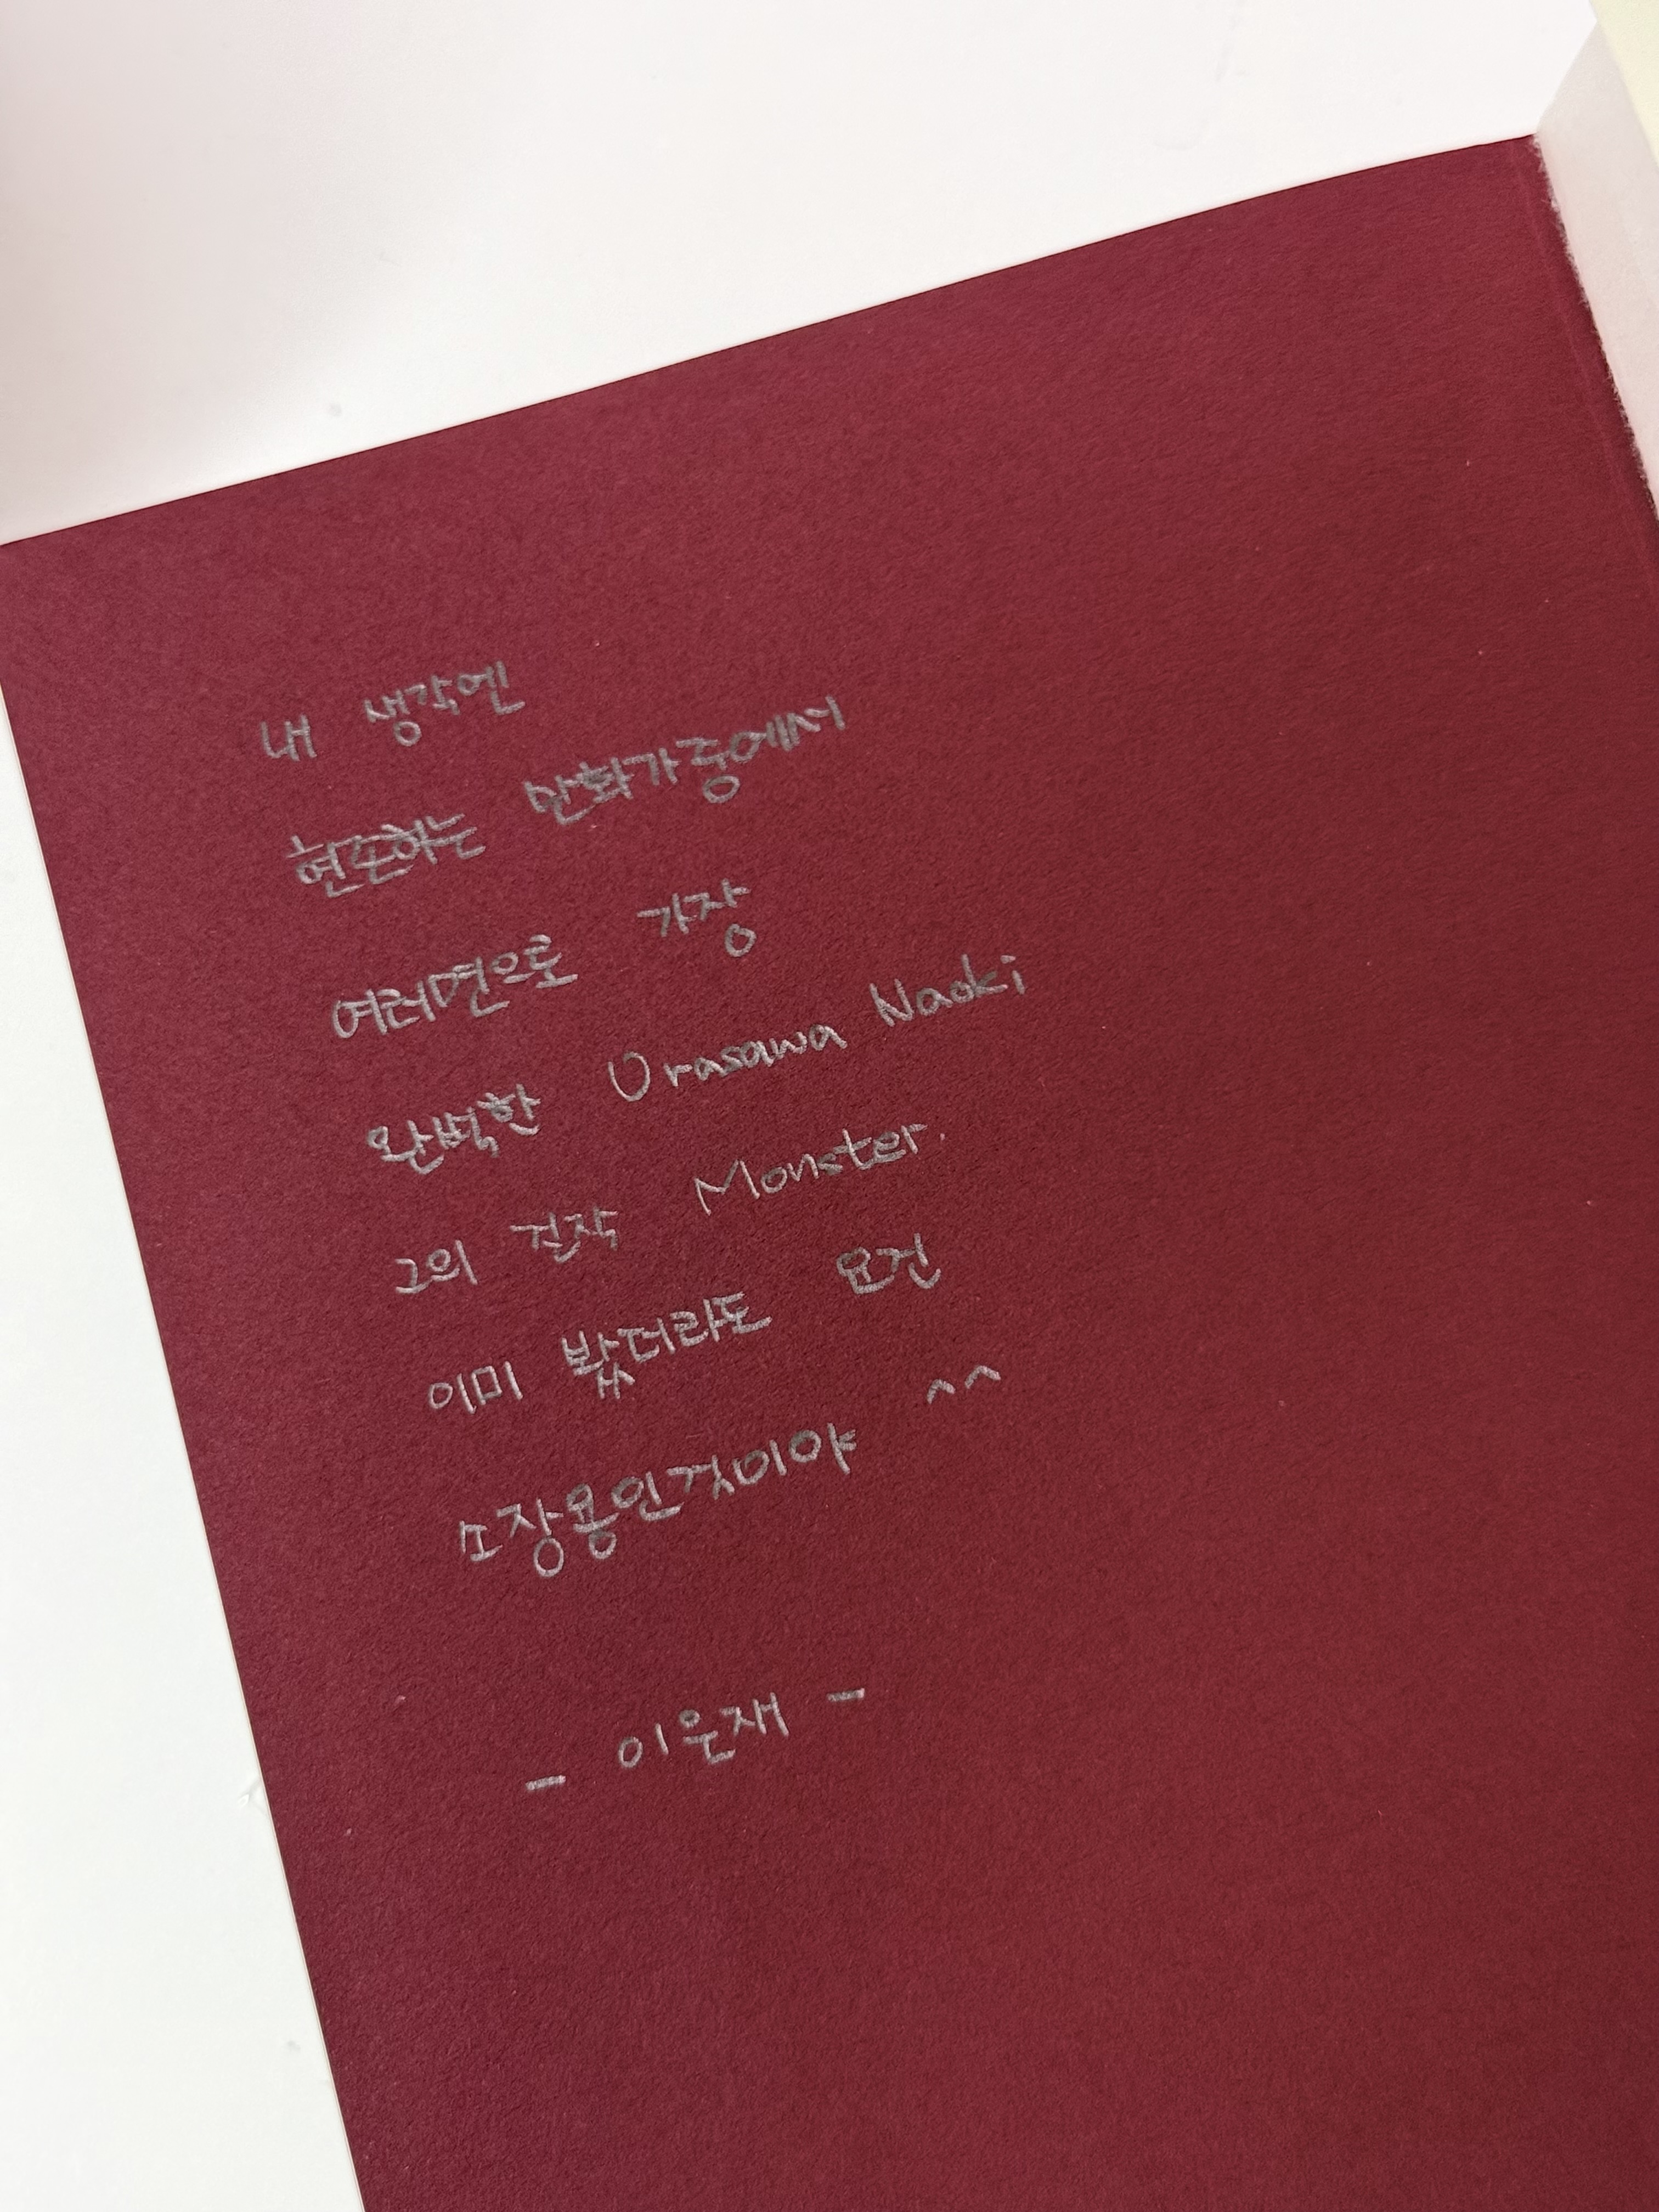 내 생각엔
현존하는 만화가중에서
여러면으로 가장
완벽한 Urasawa Naoki
그의 진작 Monster.
이미 봤더라도 요건
소장용인것이야 ^^
- 이은재 -